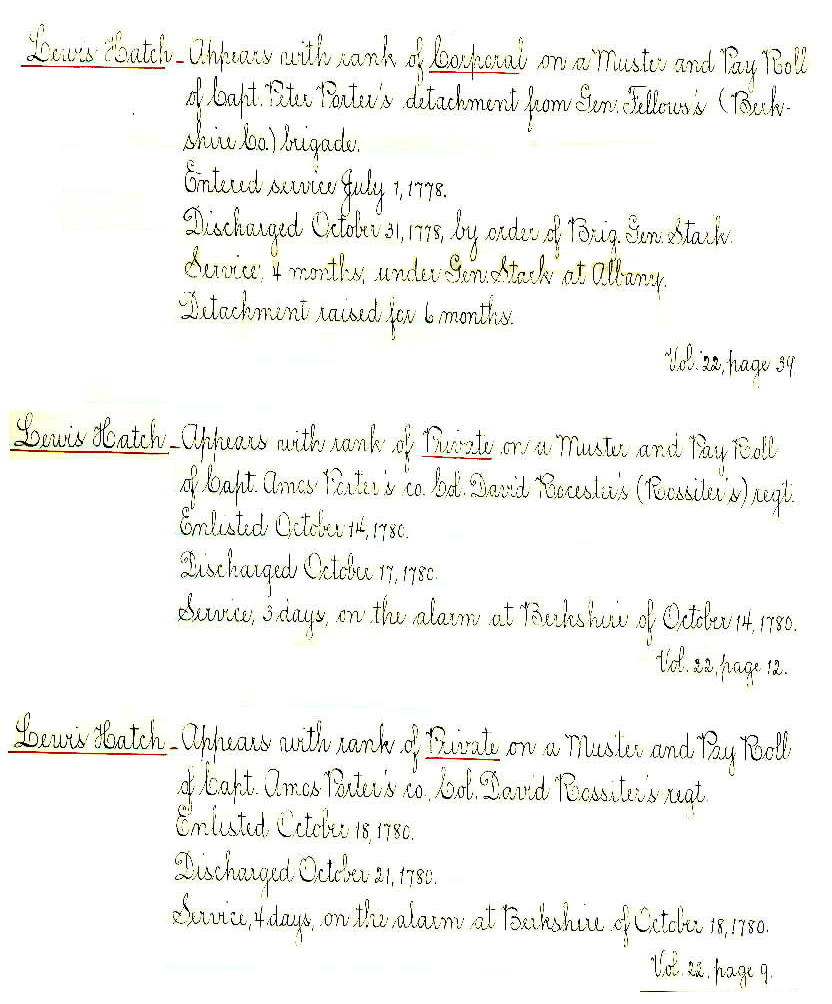 Lewis Hatch - Appears with rank of Corporal on a Muster and Pay Roll
of Capt. Peter Porter's detachment from Gen. Fellows's (Berk-
shire Co.) brigade.
Entered service July 1, 1778.
Discharged October 31, 1778, by order of Brig. Gen. Stark.
Service, 4 months, under Gen. Stark at Albany.
Detachment raised for 6 months.
Vol. 22, page 34
Lewis Hatch - Appears with rank of Private on a Muster and Pay Roll
of Capt. Amos Porter's co. Col. David Rocester's (Rossiter's) regt.
Enlisted October 14, 1780.
Discharged October 17, 1780.
Service, 3 days, on the alarm at Berkshire of October 14, 1780.
Vol. 22, page 12.
Lewis Hatch - Appears with rank of Private on a Muster and Pay Roll
of Capt. Amos Porter's co., Col. David Rossiter's regt.
Enlisted October 18, 1780.
Discharged October 21, 1780.
Service, 4 days, on the alarm at Berkshire of October 18, 1780.
Vol. 22, page 9.